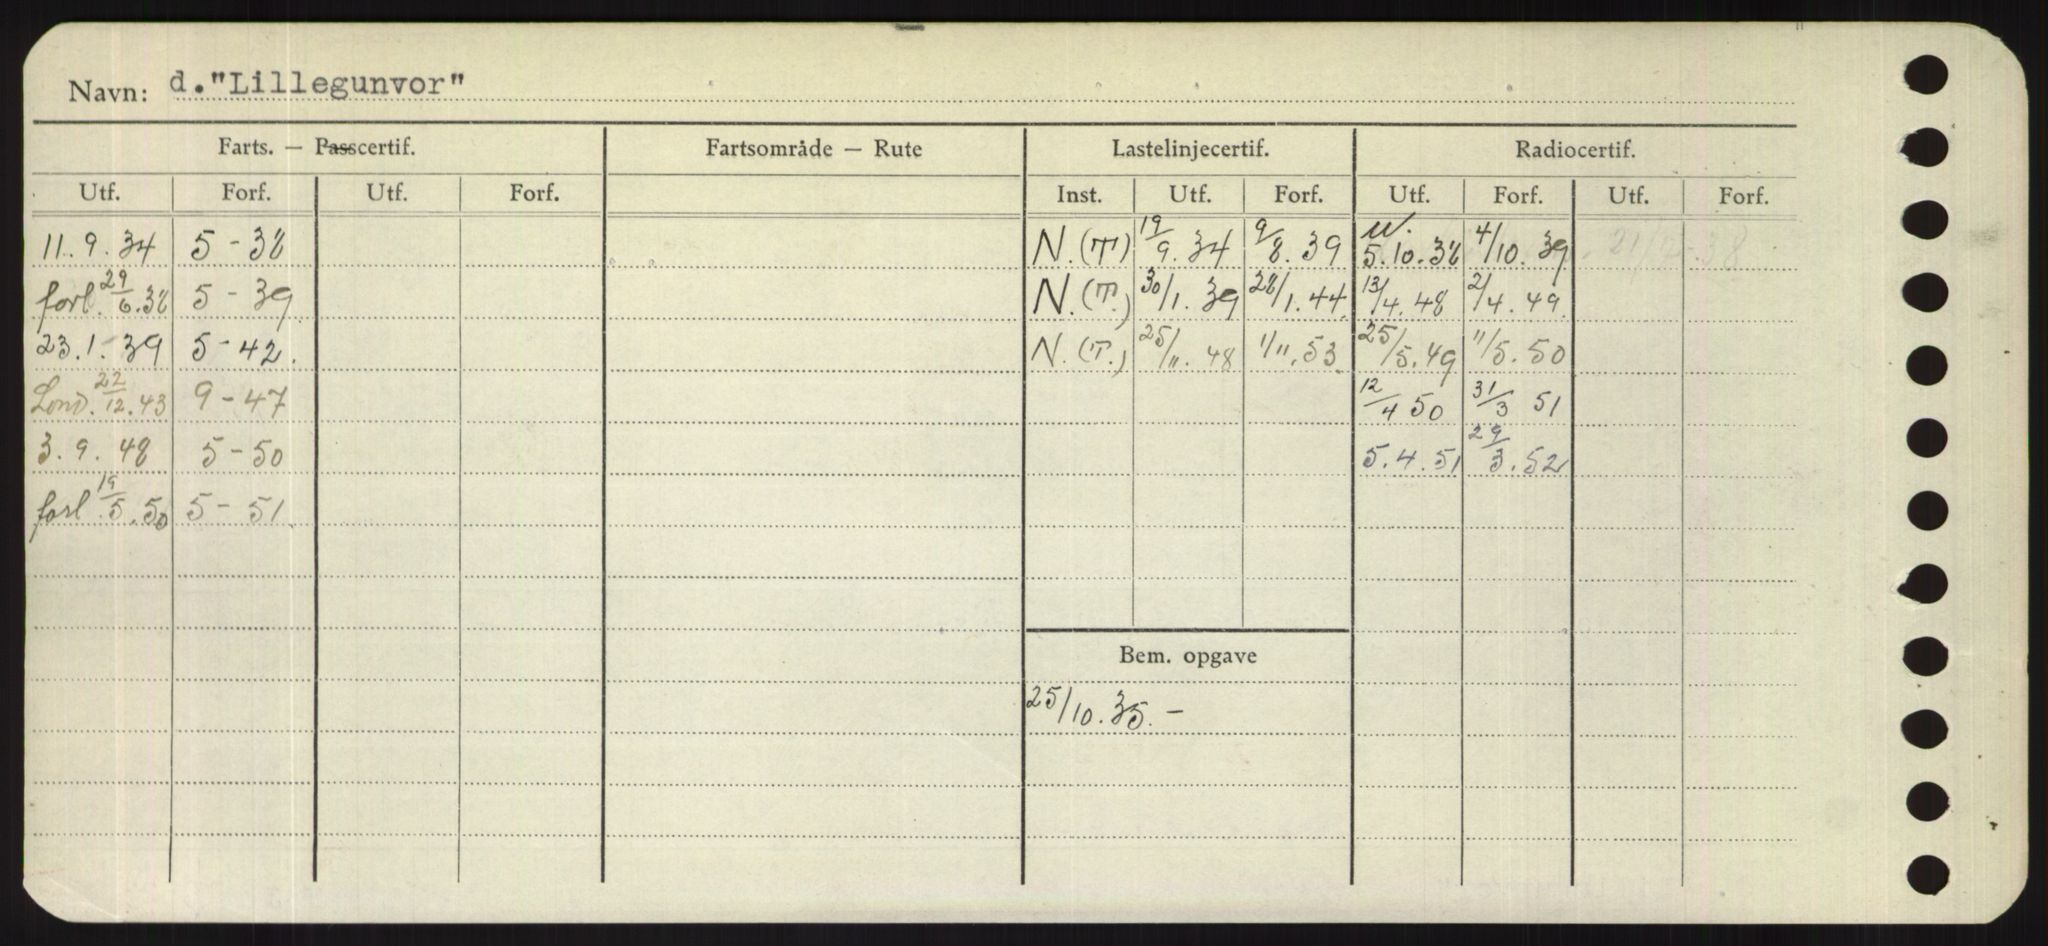 Navn: d."Lillegunvor"
Farts. — Passcertif. Fartsområde — Rute Lastelinjecertif. Radiocertif.
Utf. Forf. Utf. Forf. Inst. Utf. Forf. Utf. Forf. Utf. Forf.
11.9.34 5-38 N.(T) 19/9.34 9/8.39 u. 5.10.38 4/10.39
forl. 29/6.38 5-39 N.(T.) 30/1.39 28/1.44 13/4.48 2/4.49
23.1.39 5-42. N.(T.) 25/11.48 1/11.53 25/5.49 11/5.50
Lond. 22/12.43 9-47 12/4 50 31/3 51
3.9.48 5-50 5.4.51 29/3.52
forl 19/5.50 5-51
Bem. opgave
25/10.35.-